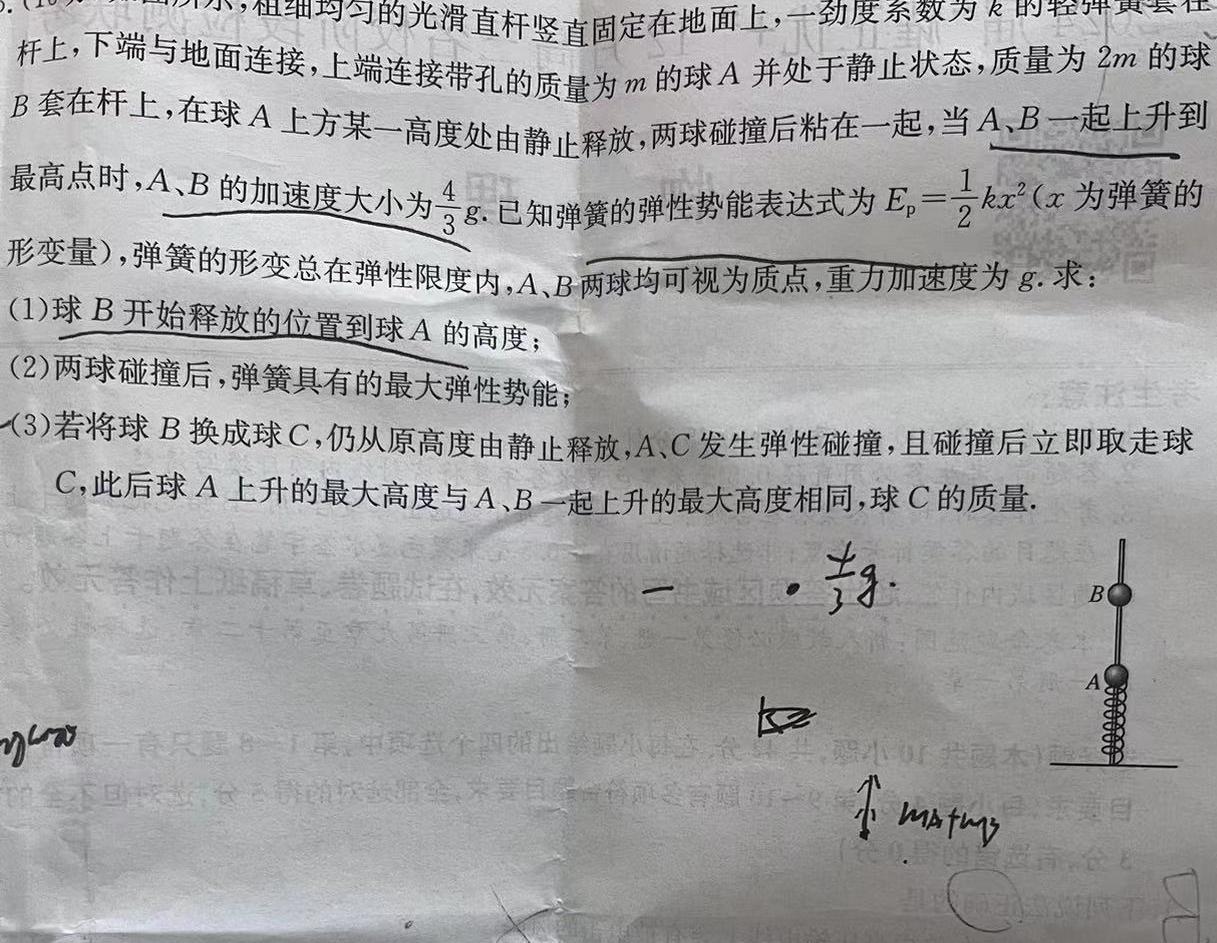 粗细均匀的光滑直杆竖直固定在地面上,一劲度系数为 k 的轻弹簧套在
杆上,下端与地面连接,上端连接带孔的质量为 m 的球 A 并处于静止状态,质量为 2m 的球
B 套在杆上,在球 A 上方某一高度处由静止释放,两球碰撞后粘在一起,当 A、B 一起上升到
最高点时,A、B 的加速度大小为 4/3 g. 已知弹簧的弹性势能表达式为 Ep=1/2 kx²(x 为弹簧的
形变量),弹簧的形变总在弹性限度内,A、B 两球均可视为质点,重力加速度为 g. 求:
(1)球 B 开始释放的位置到球 A 的高度;
(2)两球碰撞后,弹簧具有的最大弹性势能;
(3)若将球 B 换成球 C,仍从原高度由静止释放,A、C 发生弹性碰撞,且碰撞后立即取走球
C,此后球 A 上升的最大高度与 A、B 一起上升的最大高度相同,球 C 的质量.
4/3 g.
B
A
mA+mB